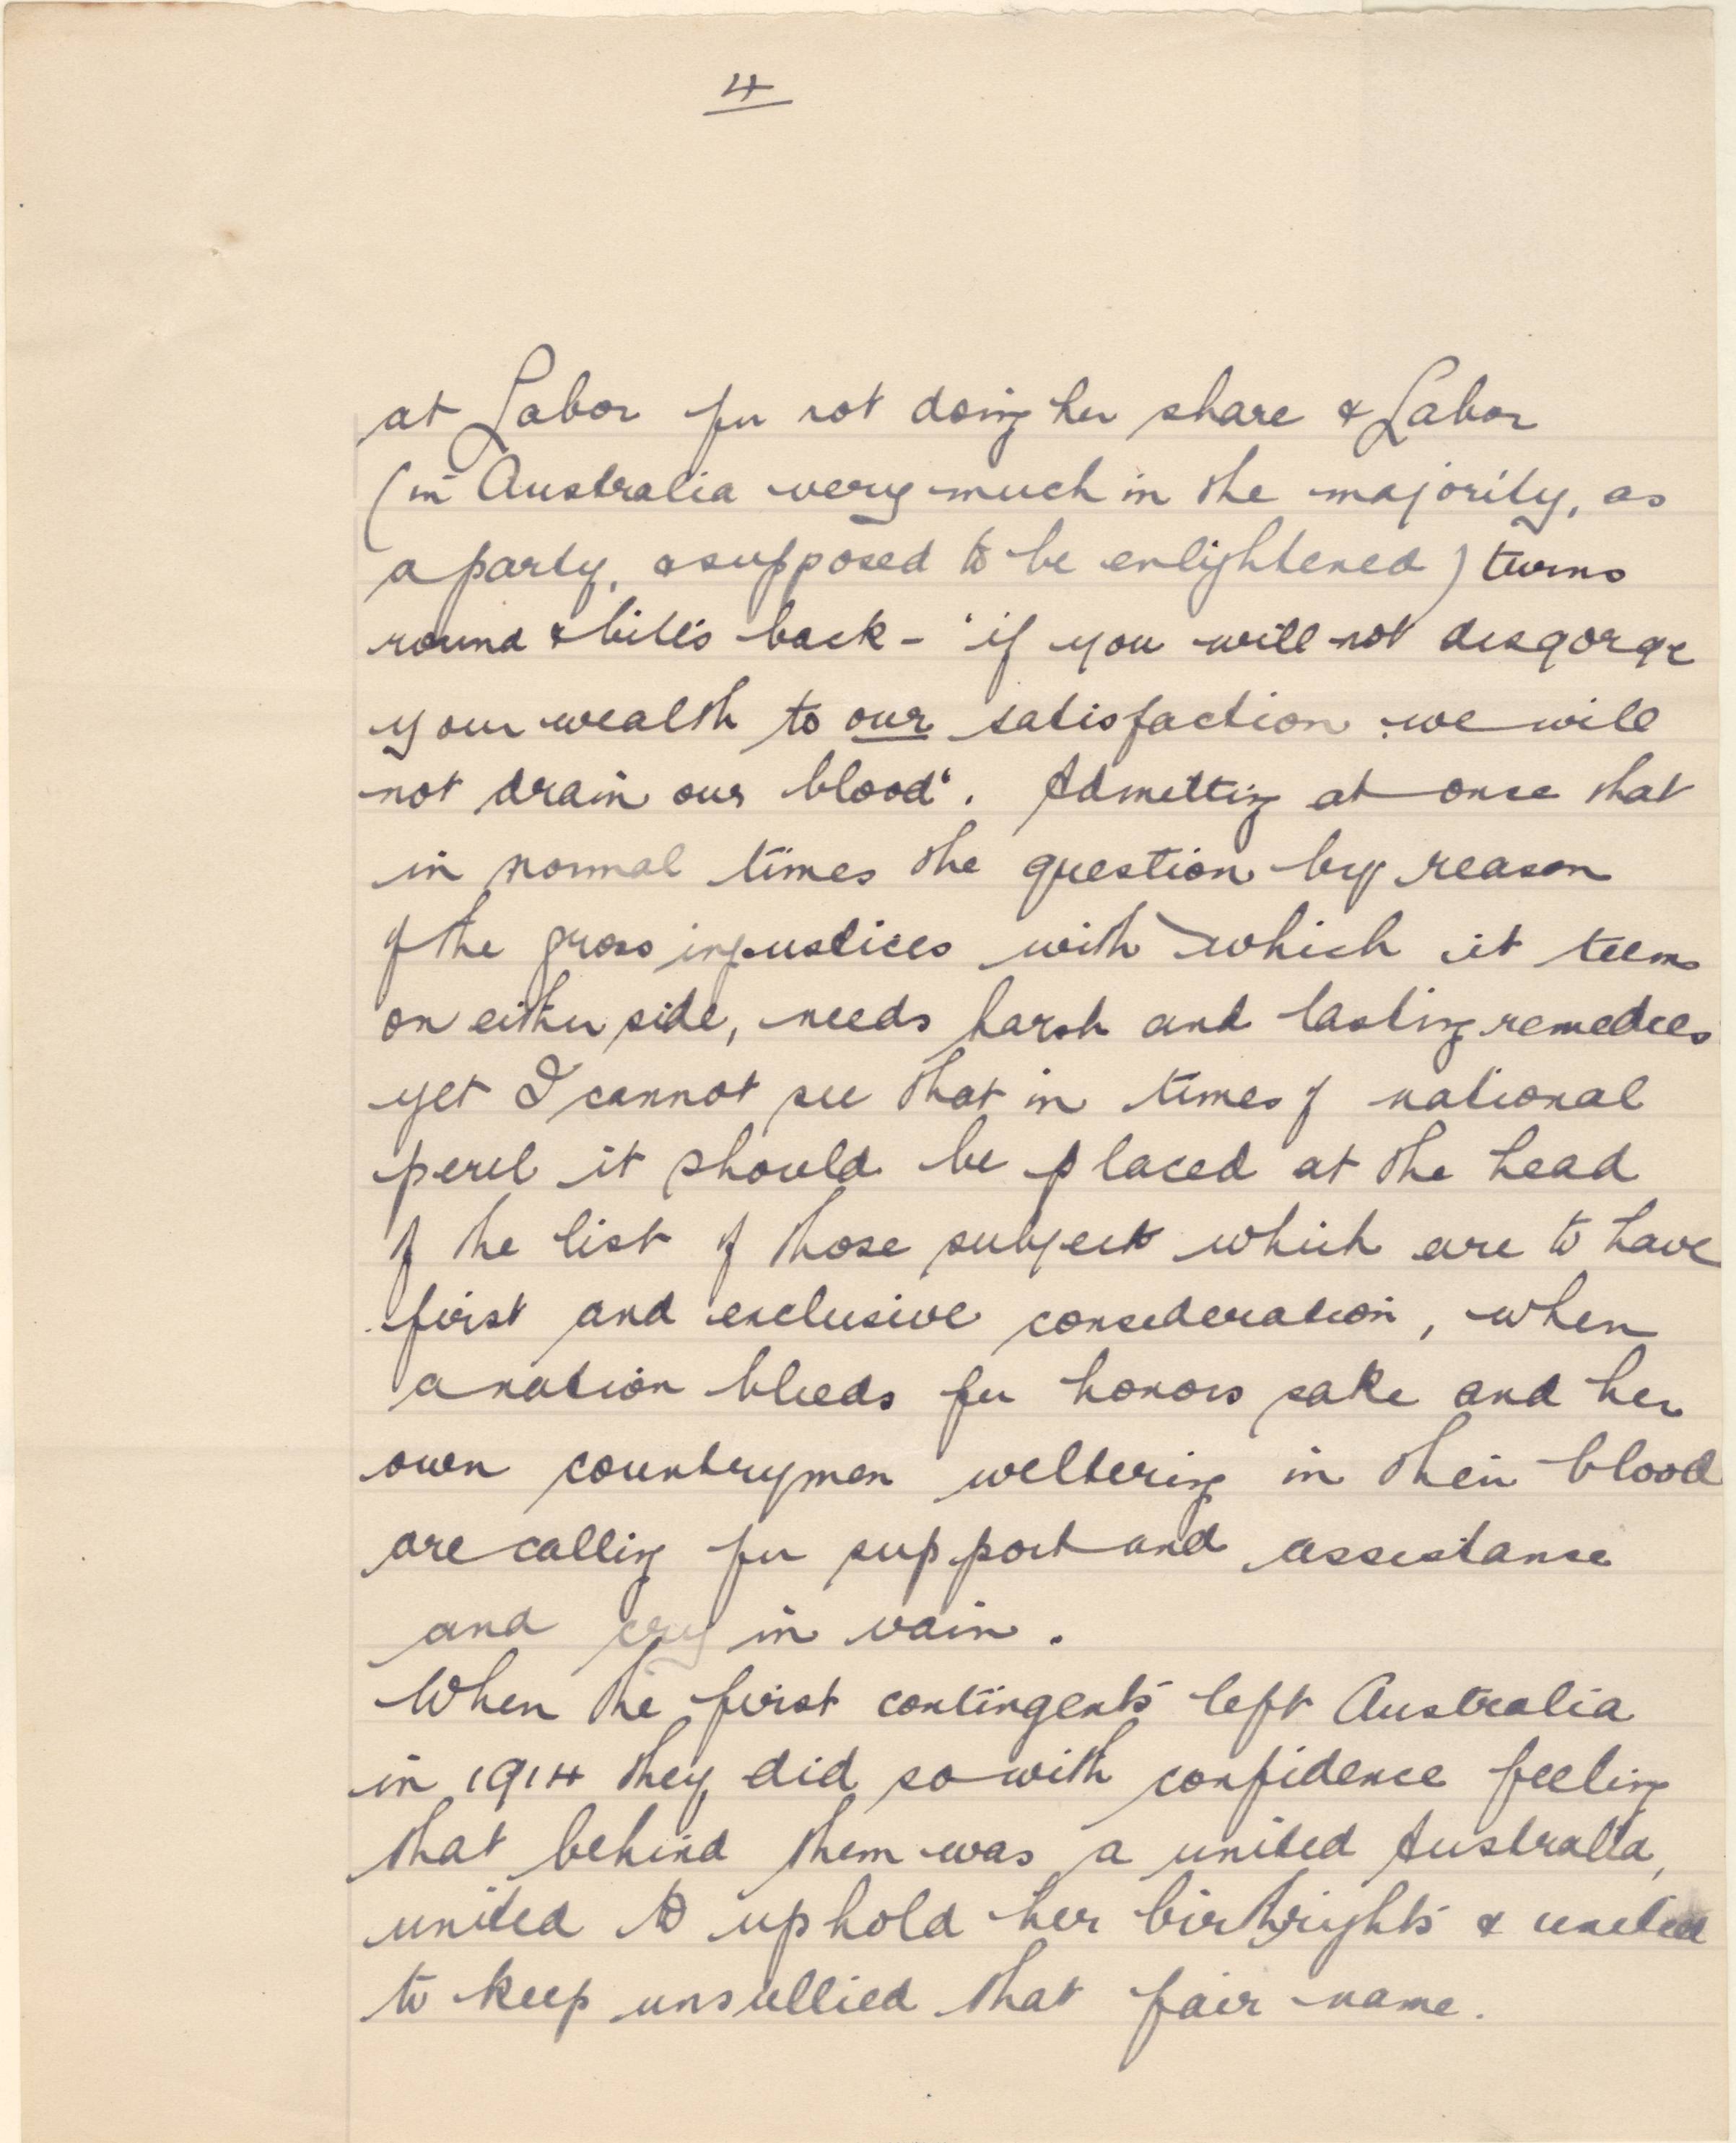 4
at Labor for not doing her share & Labor
(in Australia very much in the majority, as
a party, & supposed to be enlightened) turns
round & bites back - 'if you will not disgorge
your wealth to our satisfaction we will
not drain our blood'. Admitting at once that
in normal times the question by reason
of the gross injustices with which it teems
on either side, needs harsh and lasting remedies
yet I cannot see that in times of national
peril it should be placed at the head
of the list of those subjects which are to have
first and exclusive consideration, when
a nation bleeds for honors sake and her
own countrymen weltering in their blood
are calling for support and assistance
and cry in vain.
When the first contingents left Australia
in 1914 they did so with confidence feeling
that behind them was a united Australia,
united to uphold her birthrights & united
to keep unsullied that fair name.